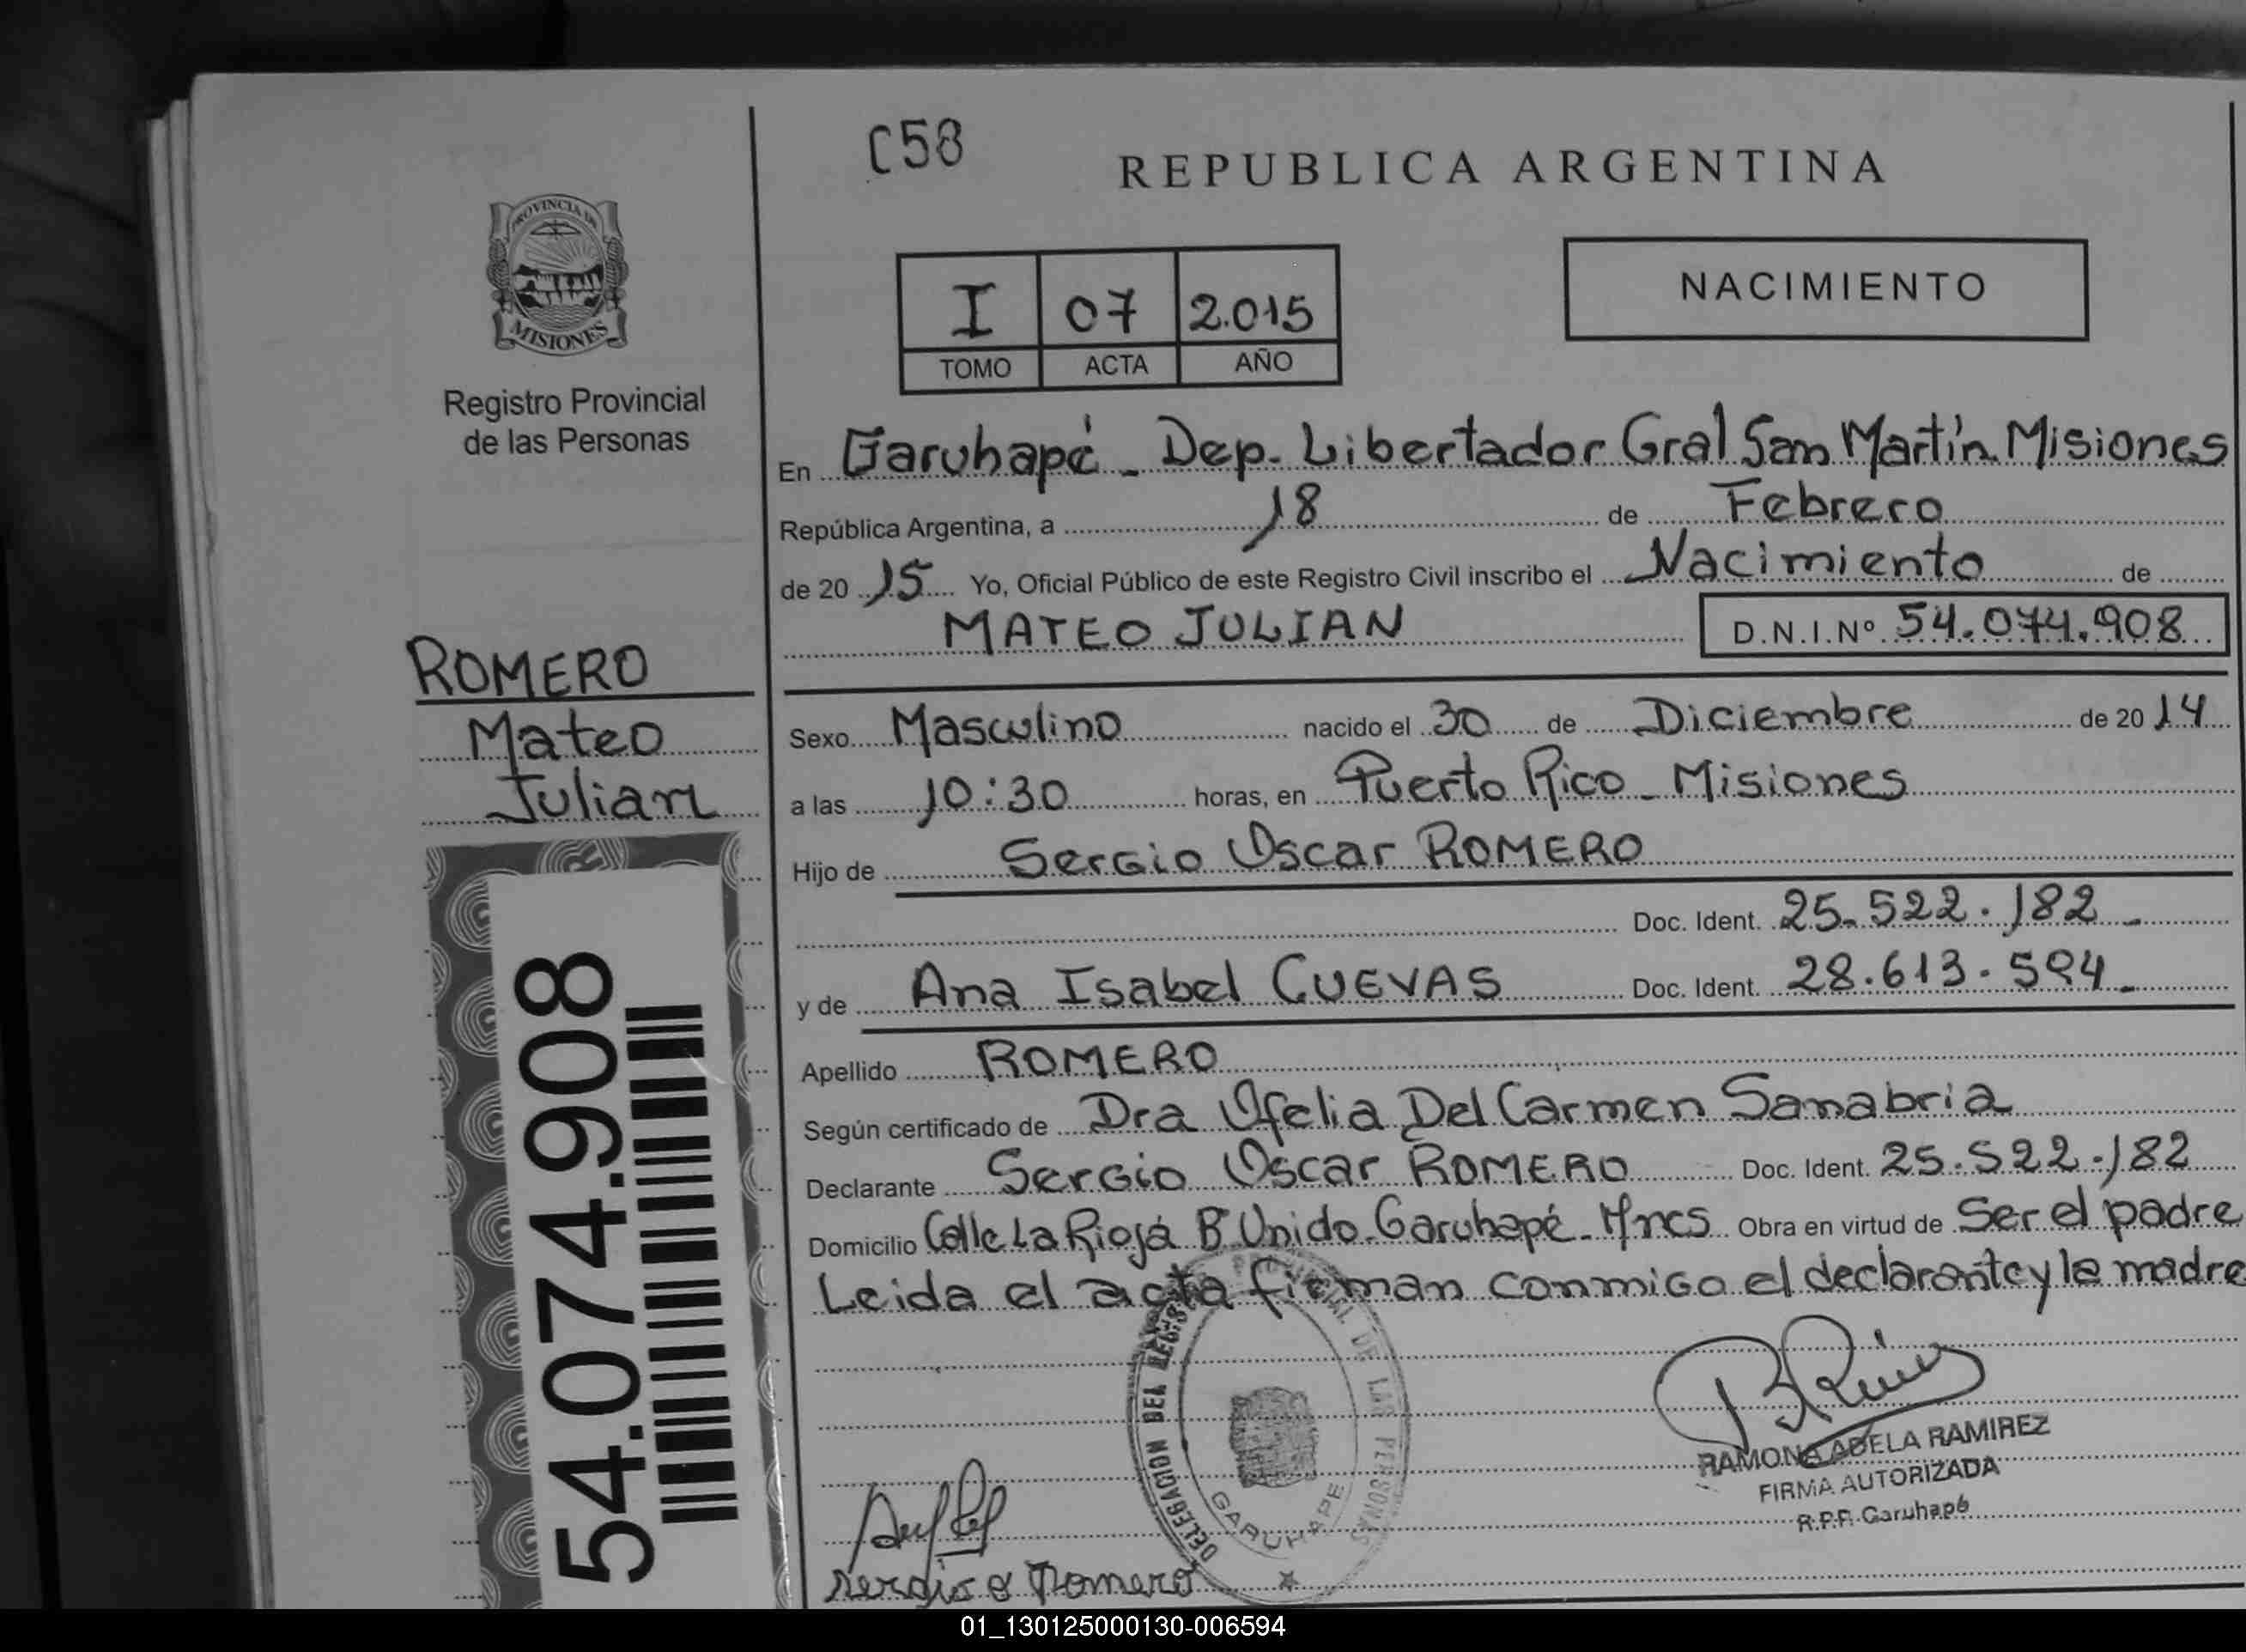 C58
REPUBLICA ARGENTINA
PROVINCIA DE
MISIONES
Registro Provincial
de las Personas
I 07 2.015
TOMO ACTA AÑO
NACIMIENTO
En Garuhapé - Dep. Libertador Gral San Martín Misiones
República Argentina, a 18 de Febrero
de 20 15 Yo, Oficial Público de este Registro Civil inscribo el Nacimiento de
MATEO JULIAN D.N.I.Nº 54.074.908
ROMERO
Mateo
Julian
54.074.908
Sexo Masculino nacido el 30 de Diciembre de 20 14
a las 10:30 horas, en Puerto Rico - Misiones
Hijo de Sergio Oscar ROMERO
Doc. Ident. 25.522.182-
y de Ana Isabel CUEVAS Doc. Ident. 28.613.594-
Apellido ROMERO
Según certificado de Dra Ofelia Del Carmen Sanabria
Declarante Sergio Oscar ROMERO Doc. Ident. 25.522.182
Domicilio Calle La Rioja Bº Unido - Garuhapé - Mnes Obra en virtud de Ser el padre
Leida el acta firman conmigo el declarante y la madre
DELEGACION DEL REGISTRO PROVINCIAL DE LAS PERSONAS
GARUHAPE
RAMONA ADELA RAMIREZ
FIRMA AUTORIZADA
R.P.P. Garuhapé
Sergio O Romero
01_130125000130-006594